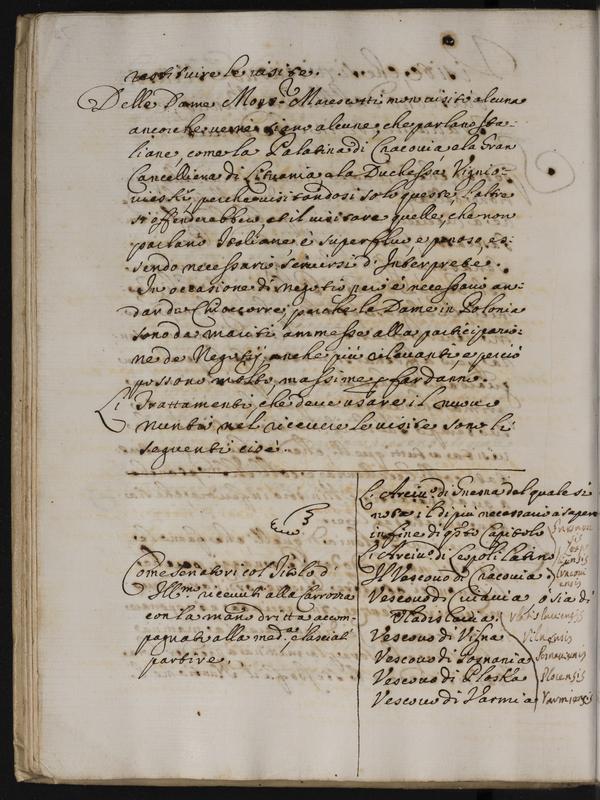 restituire le visite.
Delle Dame Mons.r Marescotti non visitò alcuna
ancorche ve ne siano alcune, che parlano Ita-
liano, come la Palatina di Cracovia, e la Gran
Cancelliera di Lituania, e la Duchessa Visnio-
vieski, perche visitandosi solo queste, l'altre
si offenderebbero, et il visitare quelle, che non
parlano Italiano è superfluo, e penoso es-
sendo necessario servirsi d'Interprete.
In occasione di negotij però è necessario an-
dar da chi occorre, perche le Dame in Polonia
sono da mariti ammesse alla participatio-
ne de Negotij, anche più rilevanti, e perciò
possono molto, massime per far danno.
Li Trattamenti che deve usare il nuovo
nuntio nel ricevere le visite sono li
seguenti cioè.
Come Senatori col Titolo d'
Ill.mo ricevuti alla Carrozza
con la mano dritta accom-
pagnati alla med.a e lasciati
partire.
L'Arciv.o di Gnesna del quale si
nota il di più necessario a sapere
in fine di q.sto Capitolo
L'Arciv.o di Leopoli latino
Il Vescovo di Cracovia
Vescovo di Cuiavia ò sia di
Vladislavia Vladislaviensis
Vescovo di Vilna Vilnensis
Vescovo di Posnania Posnaniensis
Vescovo di Ploska Plocensis
Vescovo di Varmia Varmiensis